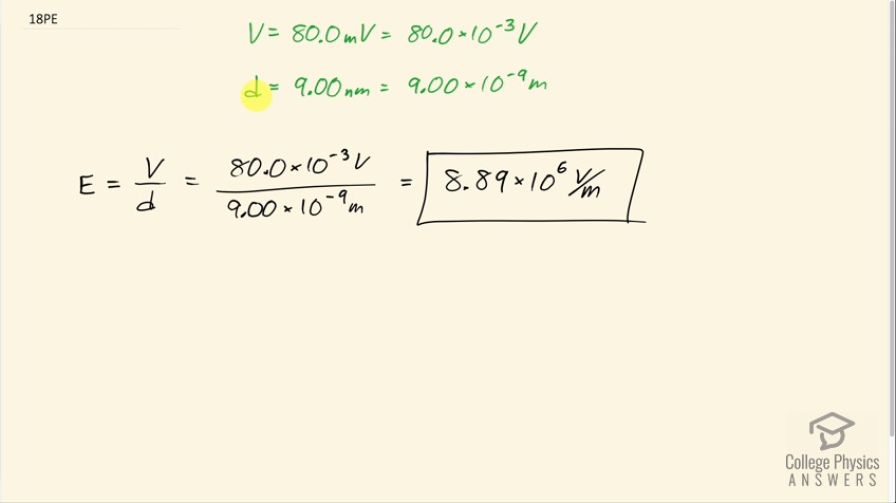 18PE
V = 80.0 mV = 80.0 × 10⁻³ V
d = 9.00 nm = 9.00 × 10⁻⁹ m
E = V/d = 80.0 × 10⁻³ V / 9.00 × 10⁻⁹ m = 8.89 × 10⁶ V/m
College Physics
ANSWERS